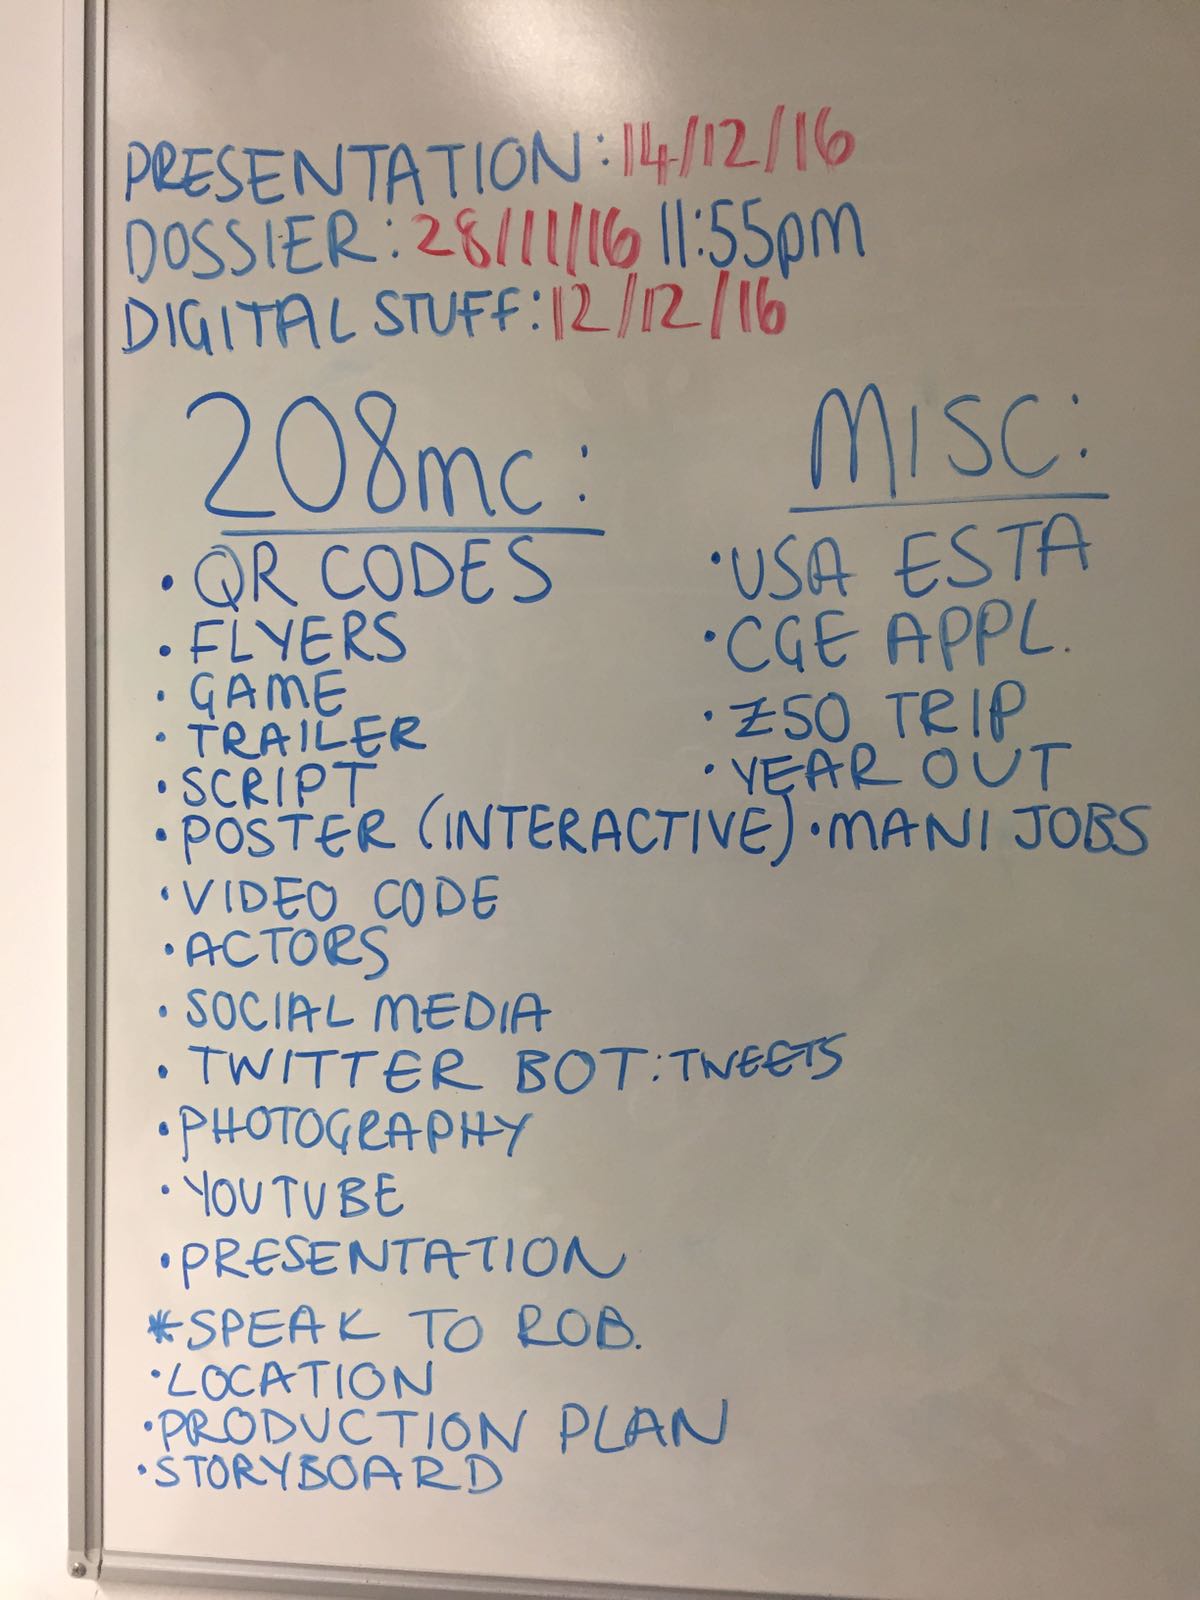 PRESENTATION: 14/12/16
DOSSIER: 28/11/16 11:55pm
DIGITAL STUFF: 12/12/16
208mc:
• QR CODES
• FLYERS
• GAME
• TRAILER
• SCRIPT
• POSTER (INTERACTIVE)
• VIDEO CODE
• ACTORS
• SOCIAL MEDIA
• TWITTER BOT: TWEETS
• PHOTOGRAPHY
• YOUTUBE
• PRESENTATION
* SPEAK TO ROB.
• LOCATION
• PRODUCTION PLAN
• STORYBOARD
MISC:
• USA ESTA
• CGE APPL.
• Z50 TRIP
• YEAR OUT
• MANI JOBS